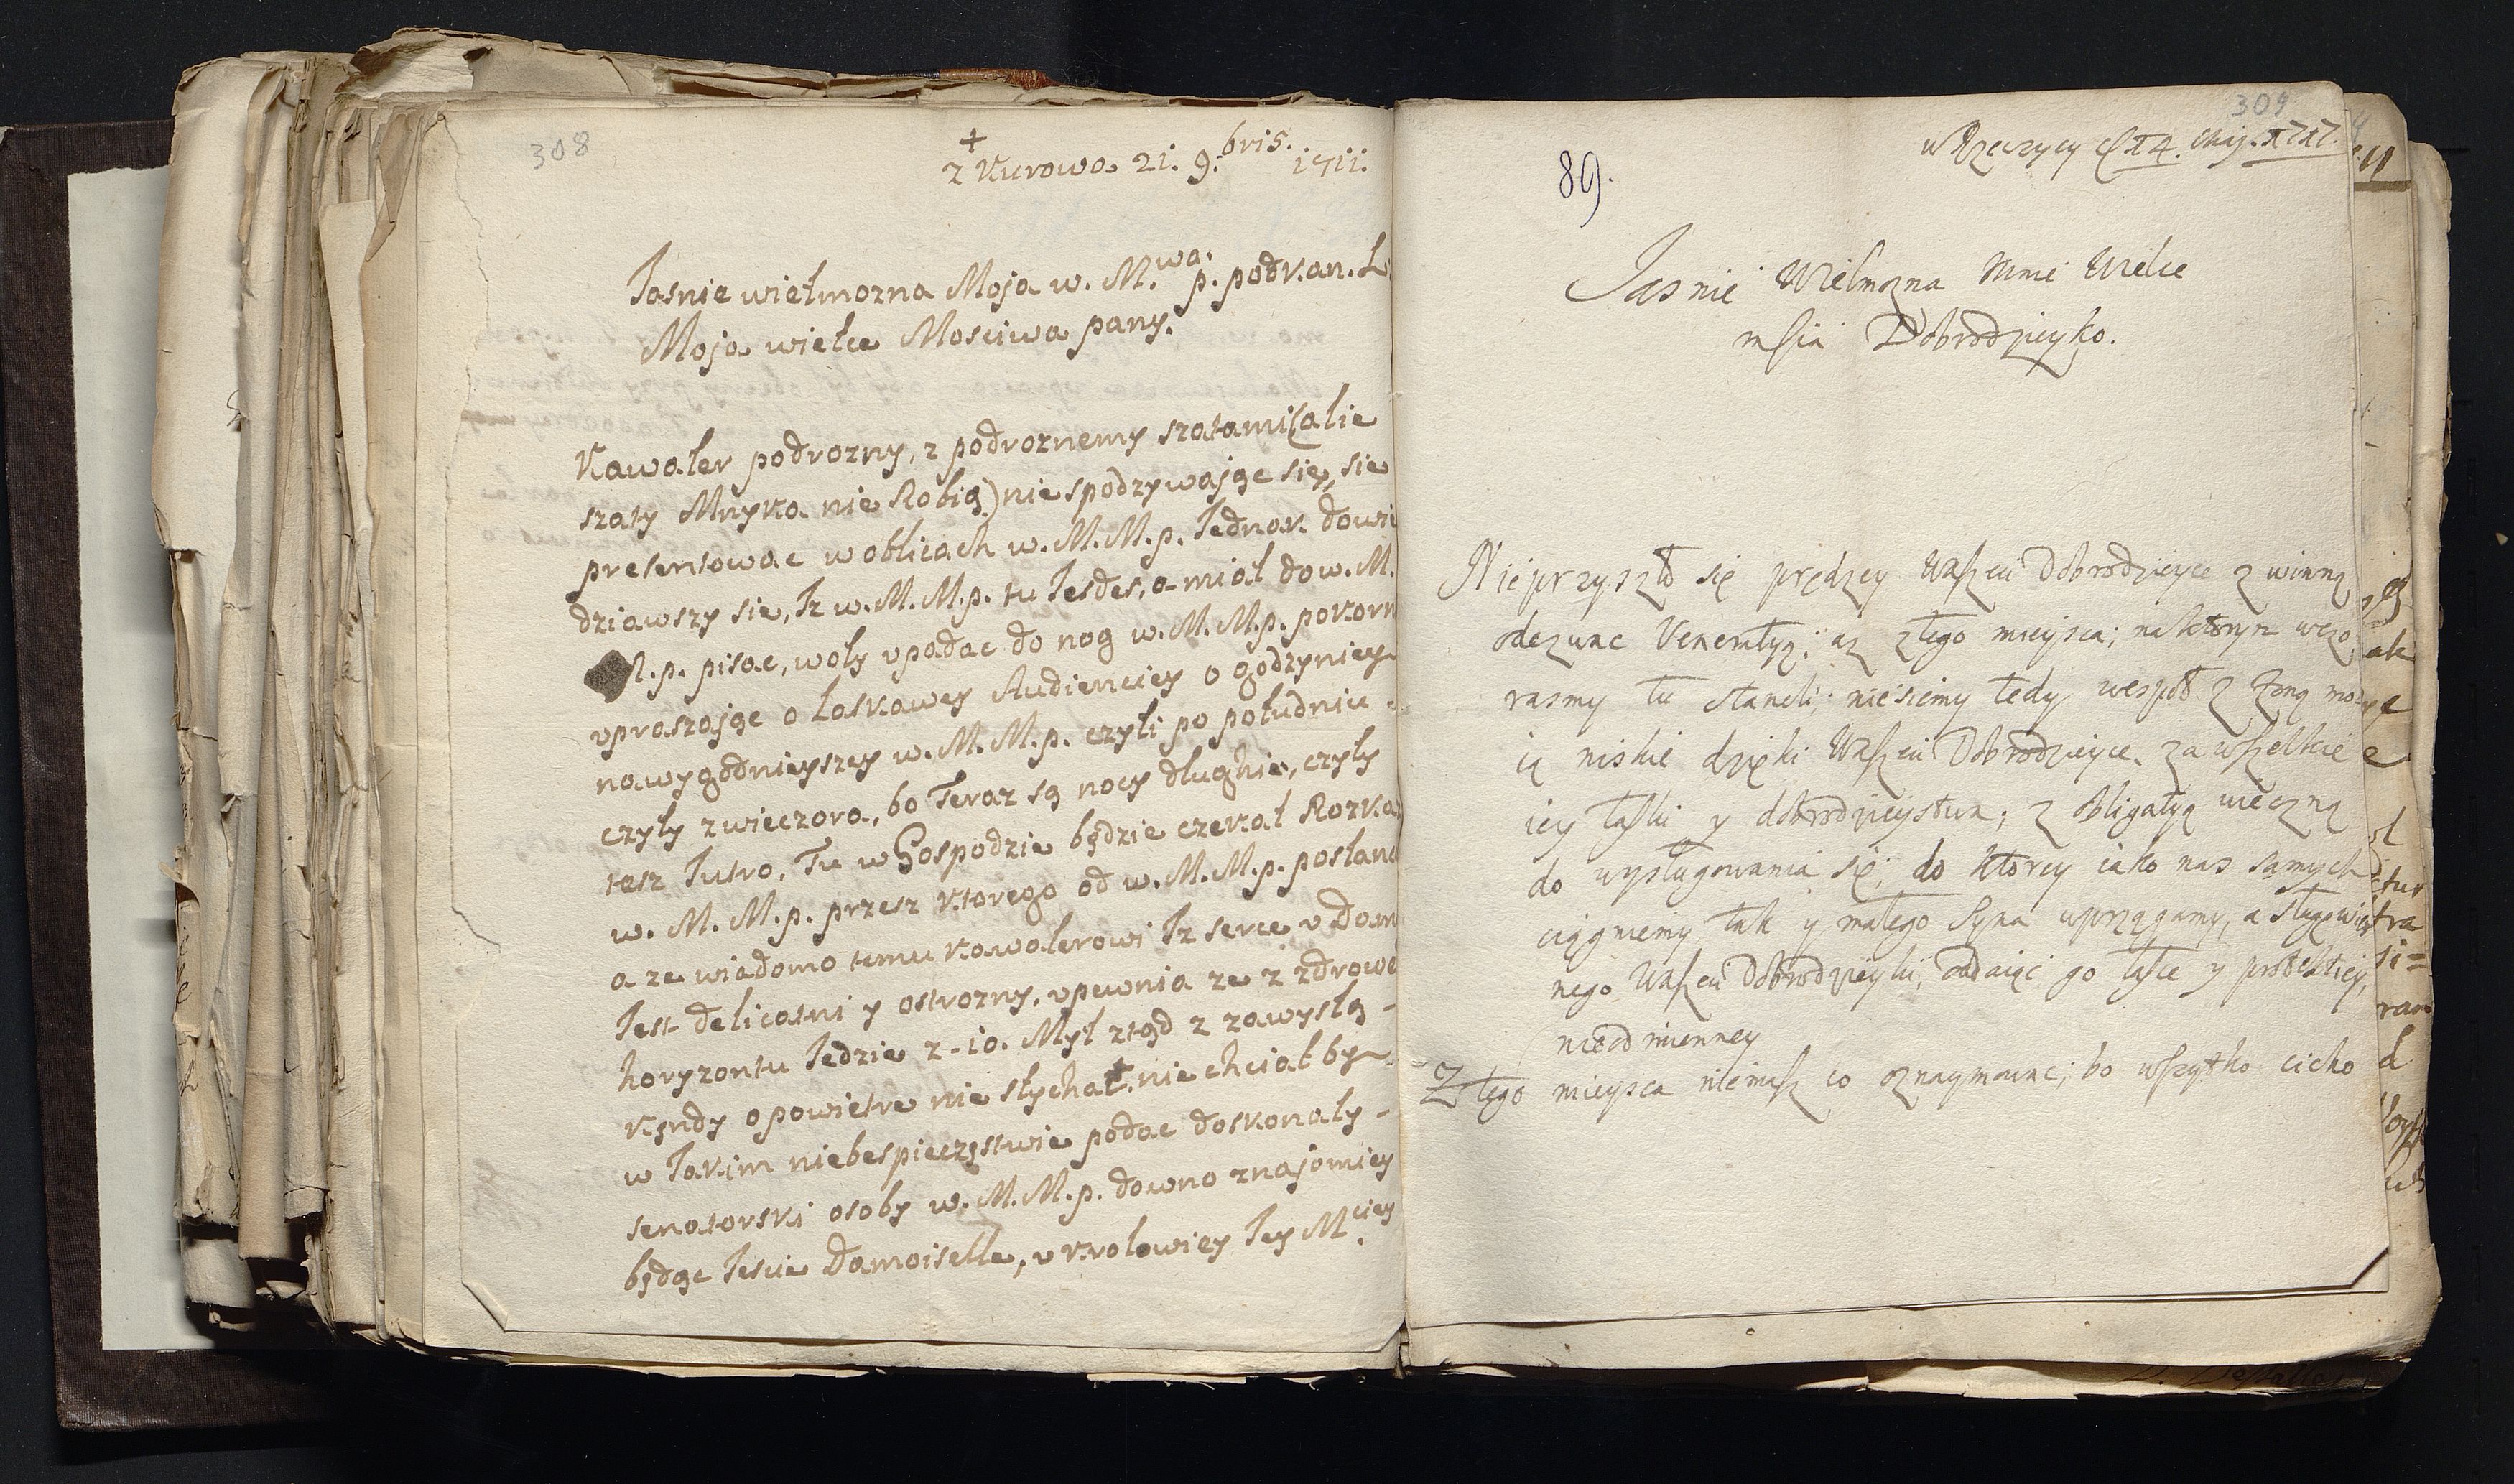 308
+
z Kurowa 21. 9.bris. 1711.
Jasnie wielmozna Moja w. M.wa. p. podkan. L
Moja wielce Mosciwa pany.
Kawaler podrozny, z podroznemy szatami (alie
szaty Mnyka nie Robią) nie spodzywajge się, sie
presentowac w oblicach w. M. M. p. Jednak dowi
dziawszy sie, Iz w. M. M. p. tu Jesdes, a miał do w. M.
M. p. pisac, woly upadac do nog w. M. M. p. pokorn
upraszajge o laskawey Audienciey o godzyniey
nawygodnieyszey w. M. M. p. czyli po południu
czyly z wieczora, bo Teraz są nocy dlughie, czyly
tesz Jutro, Tu w Gospodzie będzie czekał Rozka
w. M. M. p. przesz ktorego od w. M. M. p. poslane
a ze wiadomo temu Kawalerowi Iz serce v Dam
Jest delicatni y ostrozny, upewnia ze z zdrowe
horyzontu Jedzie z - 10. Myl ztąd z zawyslą -
kędy o powietre nie slychał. nie chciał by
w Takim niebespieczęstwie podac doskonaly -
senatorski osoby w. M. M. p. dawno znajomiey
będąc Jescie Damoiselle, v Krolowiey Jey M.ciey
309
w Rzeczycy d 14. Maj. 1717.
89.
Jasnie Wielmozna Mnie Wielce
msćia Dobrodzieyko.
Nie przyszło się prędzey Waszeci Dobrodzieyce z winną
odezwac Veneratyą; az z tego mieysca; na ktorym wczo
rasmy tu stanęli; niesiemy tedy wespoł z Zoną mo
ią niskie dzięki Waszeci Dobrodzieyce za wszelkie
iey łaski y dobrodzieystwa; z obligatyą wieczną
do wysługowania się; do ktorey iako nas samych
ciągniemy tak y małego Syna wprzągamy, a sługę wier
nego Waszeci Dobrodzieyki, oddaiąc go łasce y protektiey,
nieodmienney
Z tego mieysca niemasz co oznaymowac; bo wszytko cicho